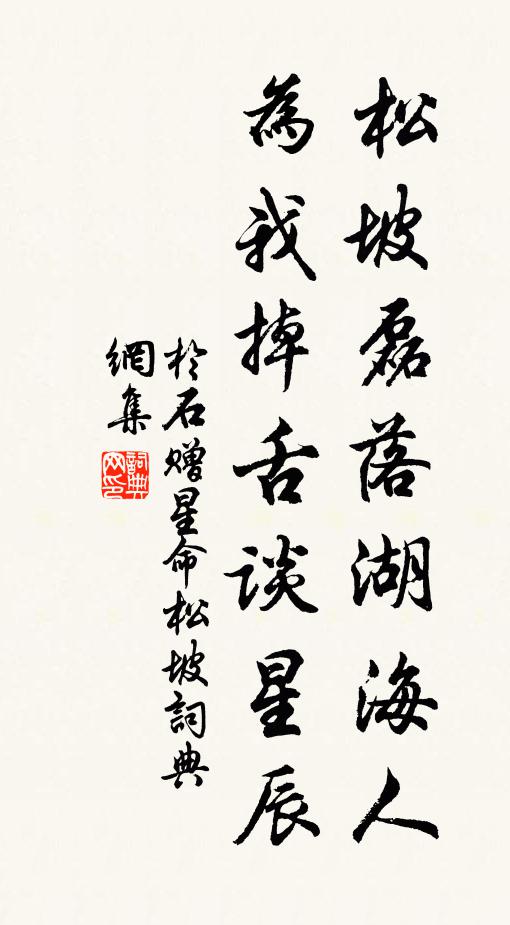 松坡磊落湖海人
為我掉舌談星辰
於石贈星命松坡詞典
網集
詞典網印